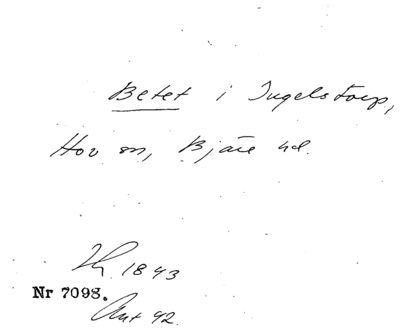 Betet i Ingelstorp,
Hov sn, Bjäre hd.
1843
Nr 7098.
Ant 42.